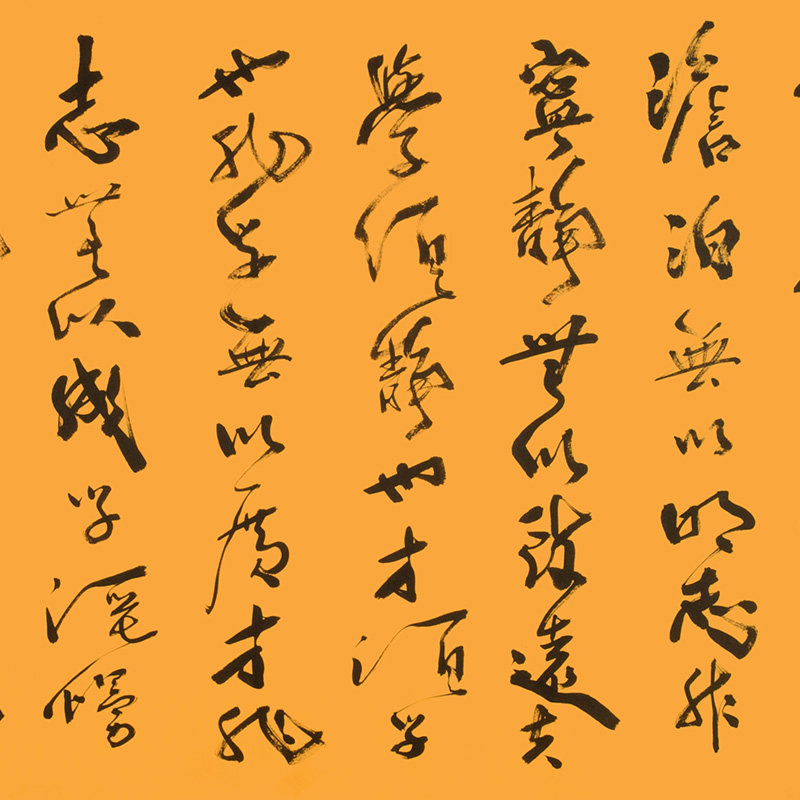 澹泊無以明志非
寧靜無以致遠夫
學須靜也才須学
也非学無以廣才非
志無以成学淫慢